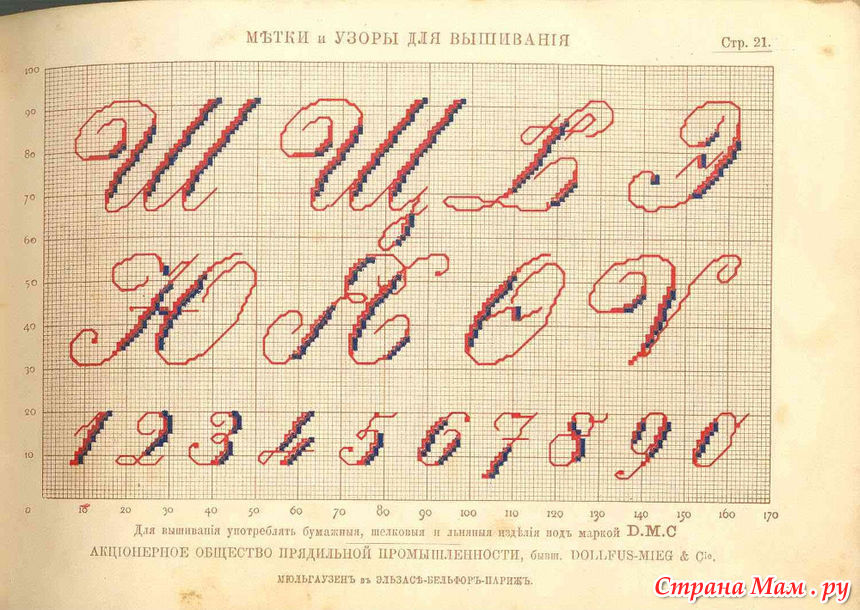 МѢТКИ и УЗОРЫ ДЛЯ ВЫШИВАНІЯ
Стр. 21.
100
90
80
70
60
50
40
30
20
10
Ш Щ Ь Э
Ю Я Ѳ Ѵ
1 2 3 4 5 6 7 8 9 0
0 10 20 30 40 50 60 70 80 90 100 110 120 130 140 150 160 170
Для вышиванія употреблять бумажныя, шелковыя и льняныя издѣлія подъ маркой D.M.C
АКЦІОНЕРНОЕ ОБЩЕСТВО ПРЯДИЛЬНОЙ ПРОМЫШЛЕННОСТИ, бывш. DOLLFUS-MIEG & Cie.
МЮЛЬГАУЗЕНЪ въ ЭЛЬЗАСѢ-БЕЛЬФОРЪ-ПАРИЖЪ.
Страна Мам.ру